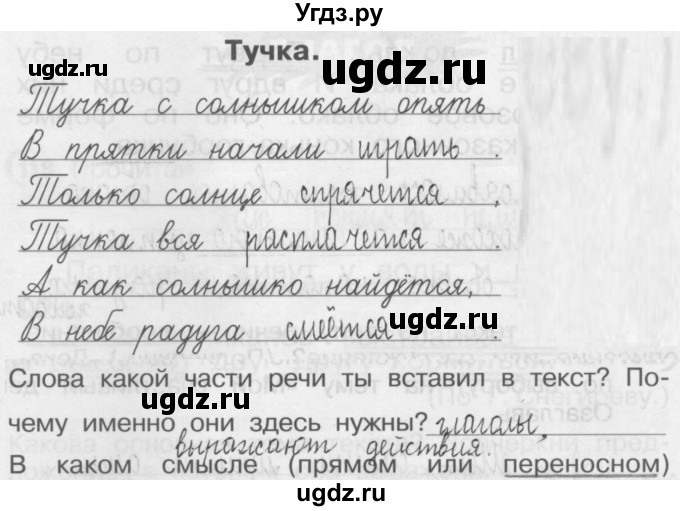 Угдз.ру
Тучка.
Тучка с солнышком опять
В прятки начали играть.
Только солнце спрячется,
Тучка вся расплачется.
А как солнышко найдётся,
В небе радуга смеётся.
Слова какой части речи ты вставил в текст? По-
чему именно они здесь нужны? глаголы,
выражают действия.
В каком смысле (прямом или переносном)
ugdz.ru
ugdz.ru
ugdz.ru
ugdz.ru
ugdz.ru
ugdz.ru
ugdz.ru